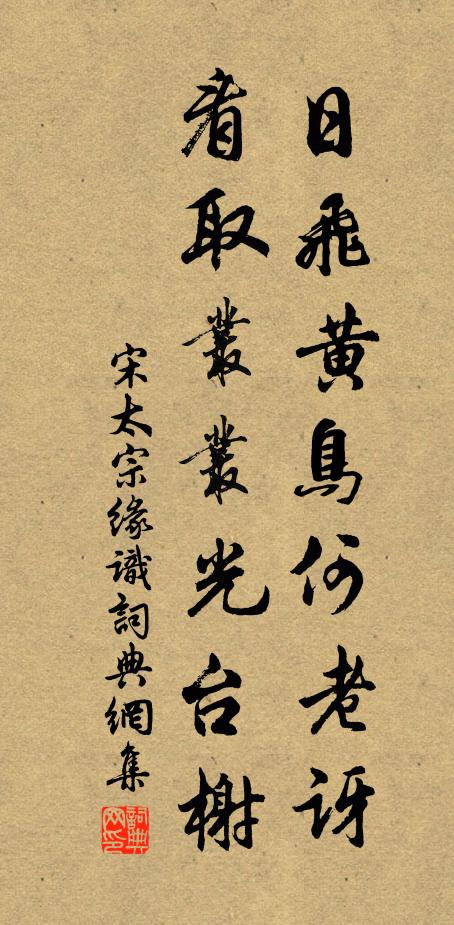 日飛黃鳥何老訝
看取叢叢光台榭
宋太宗緣識詞典網集
詞典網印